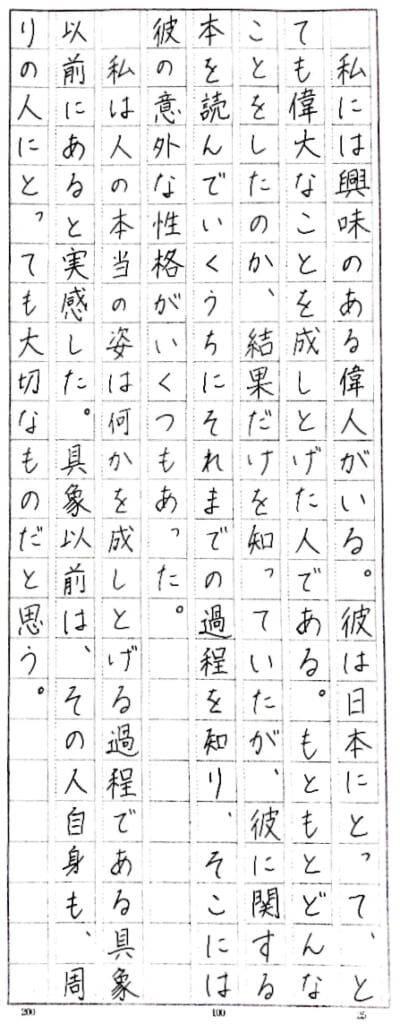 私には興味のある偉人がいる。彼は日本にとって、と
ても偉大なことを成しとげた人である。もともとどんな
ことをしたのか、結果だけを知っていたが、彼に関する
本を読んでいくうちにそれまでの過程を知り、そこには
彼の意外な性格がいくつもあった。
　私は人の本当の姿は何かを成しとげる過程である具象
以前にあると実感した。具象以前は、その人自身も、周
りの人にとっても大切なものだと思う。
200
100
25